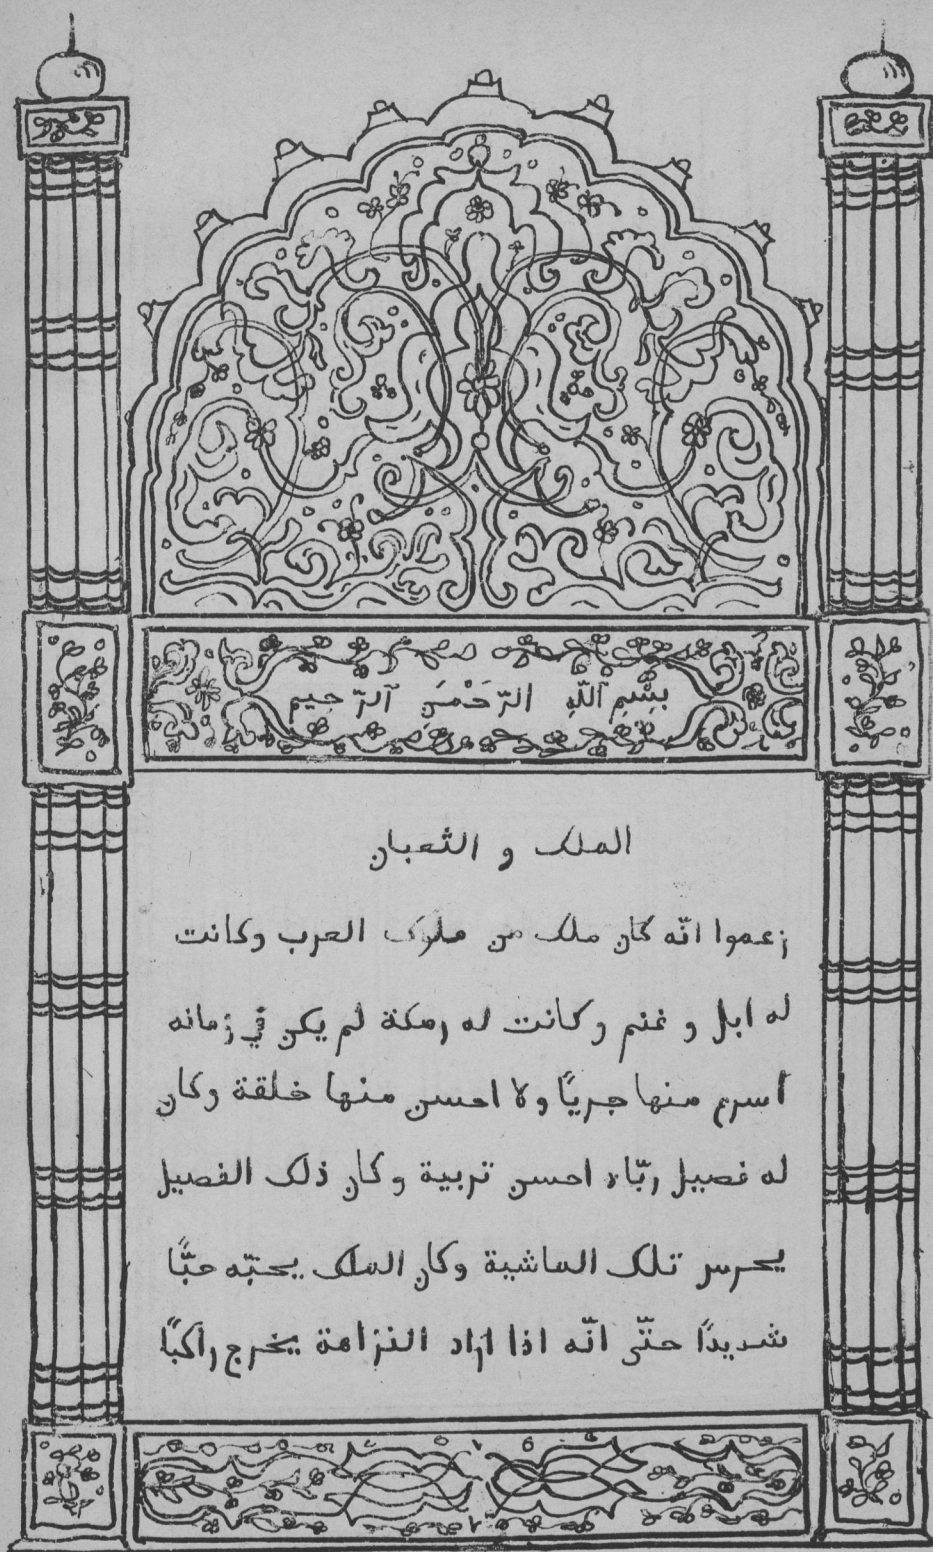 بِسْمِ ٱللّٰهِ الرَّحْمٰنِ ٱلرَّحيم
الملك و الثعبان
زعموا انّه كان ملك من ملوك العرب وكانت
له ابل و غنم وكانت له رمكة لم يكن في زمانه
اسرع منها جريًا ولا احسن منها خلقة وكان
له فصيل ربّاه احسن تربية وكان ذلك الفصيل
يحرس تلك الماشية وكان الملك يحبّه حبًّا
شديدًا حتّى انّه اذا اراد النزاهة يخرج راكبًا